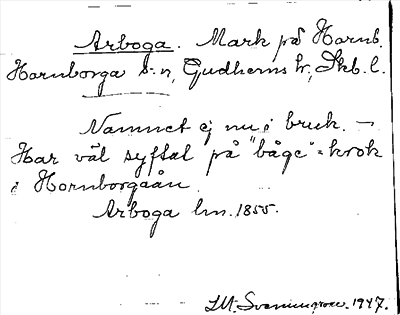 Arboga. Mark på Hornb.
Hornborga s-n, Gudhems hr, Skb. l.
Namnet ej nu i bruk. –
Har väl syftat på "båge" = krok
i Hornborgaån.
Arboga lm. 1855.
1947.